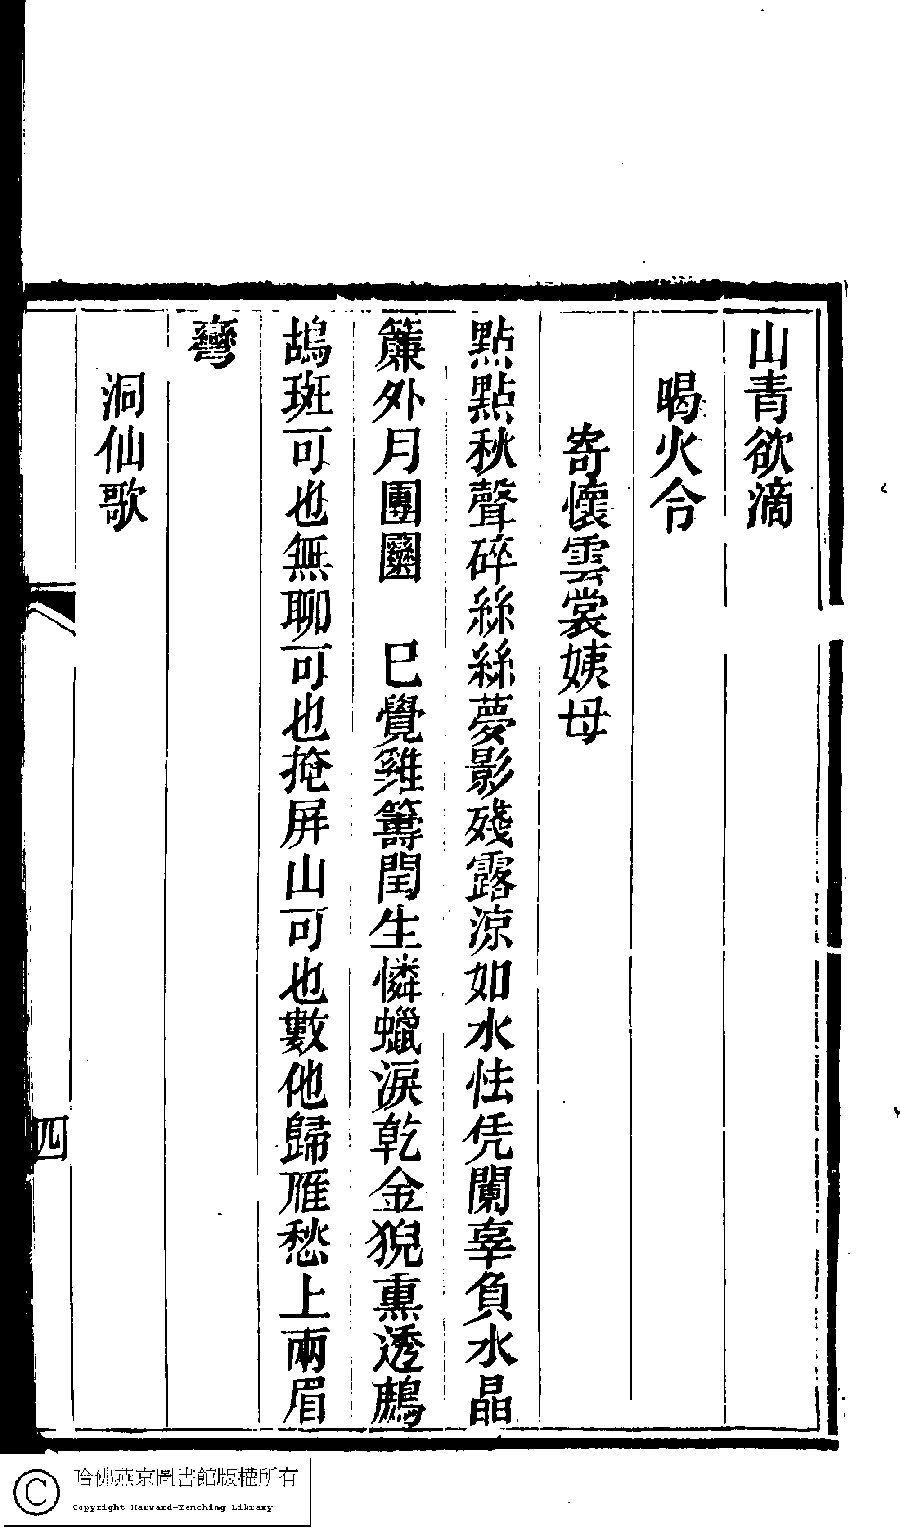 山青欲滴
喝火令
寄懷雲裳姨母
點點秋聲碎絲絲夢影殘露涼如水怯凭闌辜負水晶
簾外月團圞　巳覺雞籌閏生憐蠟淚乾金猊熏透鷓
鴣斑可也無聊可也掩屏山可也數他歸雁愁上兩眉
彎
洞仙歌
四
哈佛燕京圖書館版權所有
Copyright Harvard-Yenching Library